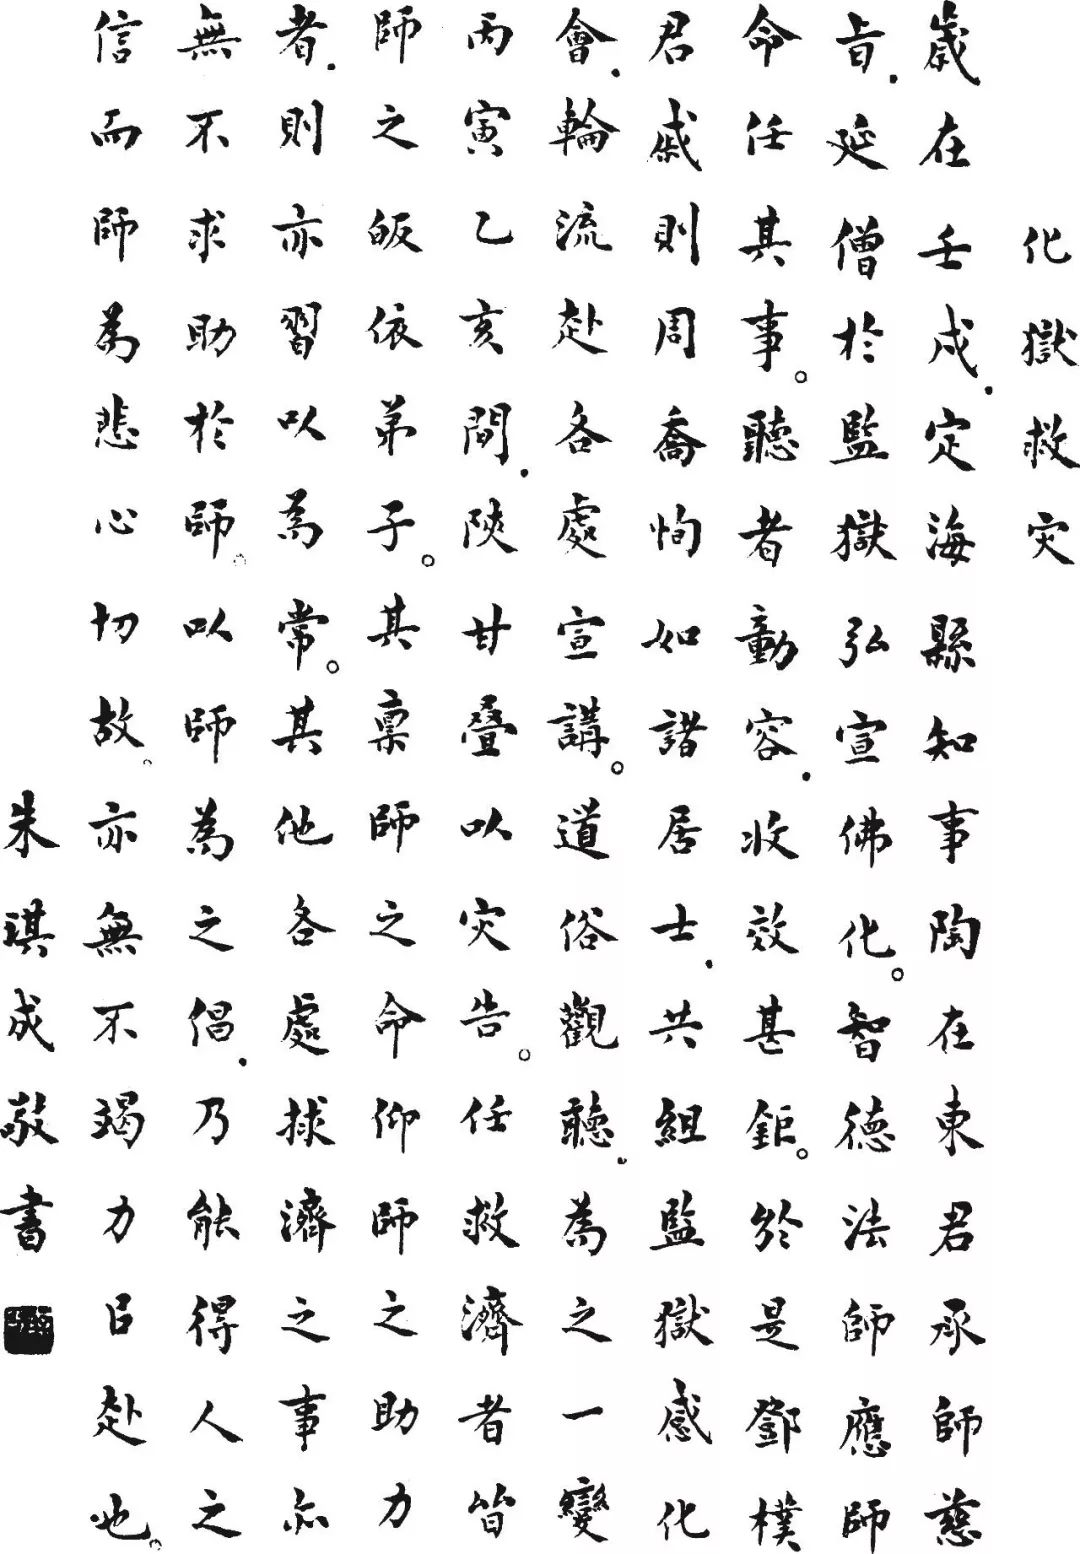 化獄救灾
歲在壬戌.定海縣知事陶在東君承師慈
旨.延僧於監獄弘宣佛化。智德法師應師
命任其事。聽者動容.收效甚鉅。於是鄧樸
君戚則周喬恂如諸居士.共組監獄感化
會.輪流赴各處宣講。道俗觀聽.為之一變
丙寅乙亥間.陝甘叠以灾告。任救濟者皆
師之皈依弟子。其稟師之命仰師之助力
者.則亦習以為常。其他各處捄濟之事亦
無不求助於師。以師為之倡.乃能得人之
信而師為悲心切故。亦無不竭力以赴也。
朱琪成敬書